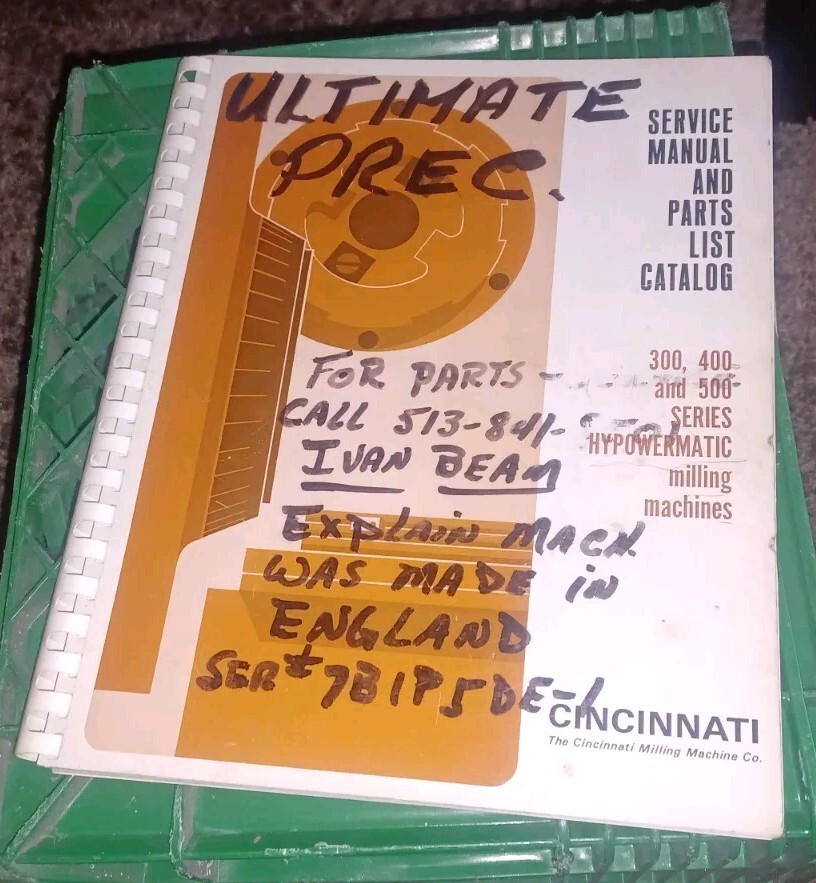 ULTIMATE
PREC.
SERVICE
MANUAL
AND
PARTS
LIST
CATALOG
300, 400
and 500
SERIES
HYPOWERMATIC
milling
machines
FOR PARTS -
CALL 513-841-
IVAN BEAM
EXPLAIN MACH.
WAS MADE IN
ENGLAND
SER# 7B1P5DE-1
CINCINNATI
The Cincinnati Milling Machine Co.